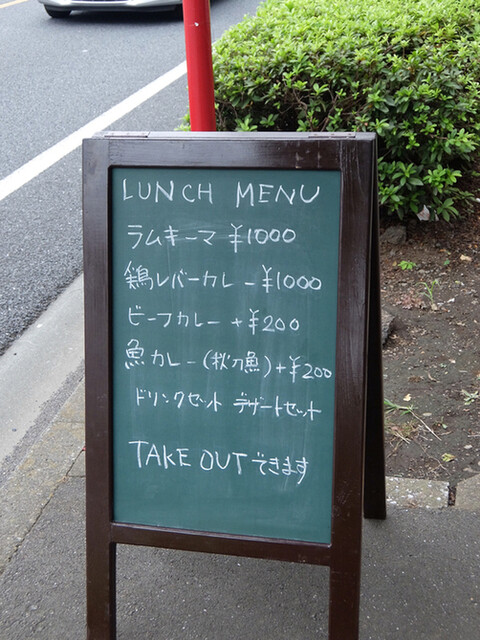 LUNCH MENU
ラムキーマ ¥1000
鶏レバーカレー ¥1000
ビーフカレー +¥200
魚カレー(秋刀魚)+¥200
ドリンクセット デザートセット
TAKE OUT できます